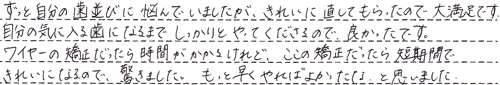 ずっと自分の歯並びに悩んでいましたが、きれいに直してもらったので大満足です。
自分の気に入る歯になるまでしっかりとやってくださるので、良かったです。
ワイヤーの矯正だったら時間がかかるけれど、ここの矯正だったら短期間で
きれいになるので、驚きました。もっと早くやればよかったな、と思いました。